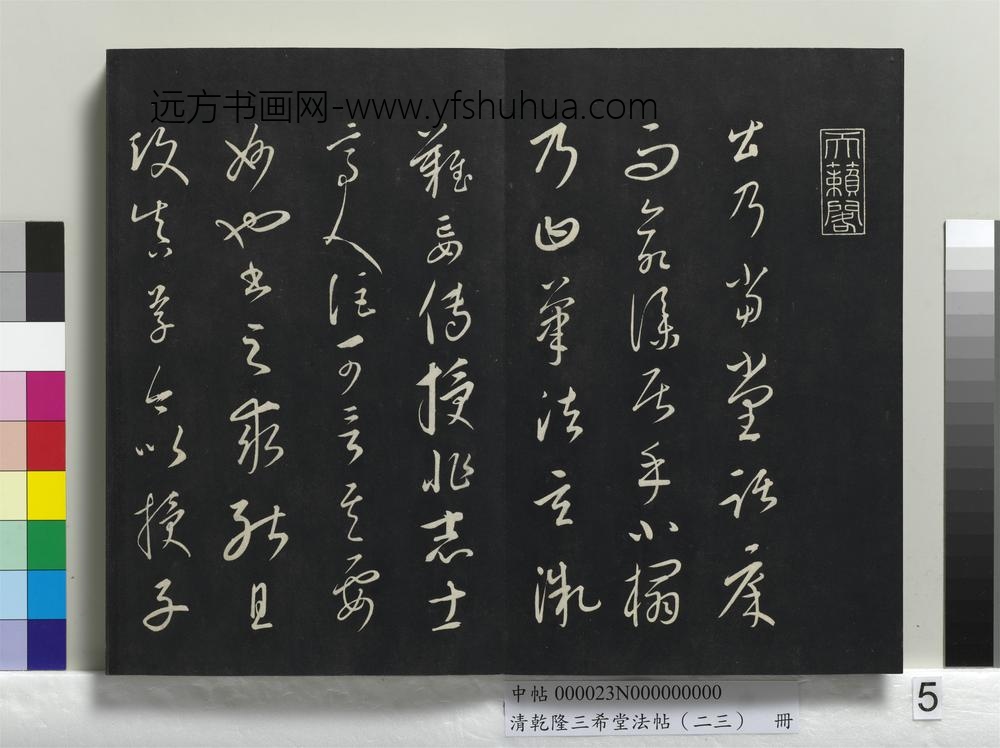 远方书画网-www.yfshuhua.com
天籟閣
出乃當堂踞床
而命僕居乎小榻
乃曰筆法玄微
難妄傳授非志士
高人詎可言其要
妙也書之求能且
攻真草今以授子
中帖 000023N000000000
清乾隆三希堂法帖（二三） 冊
5